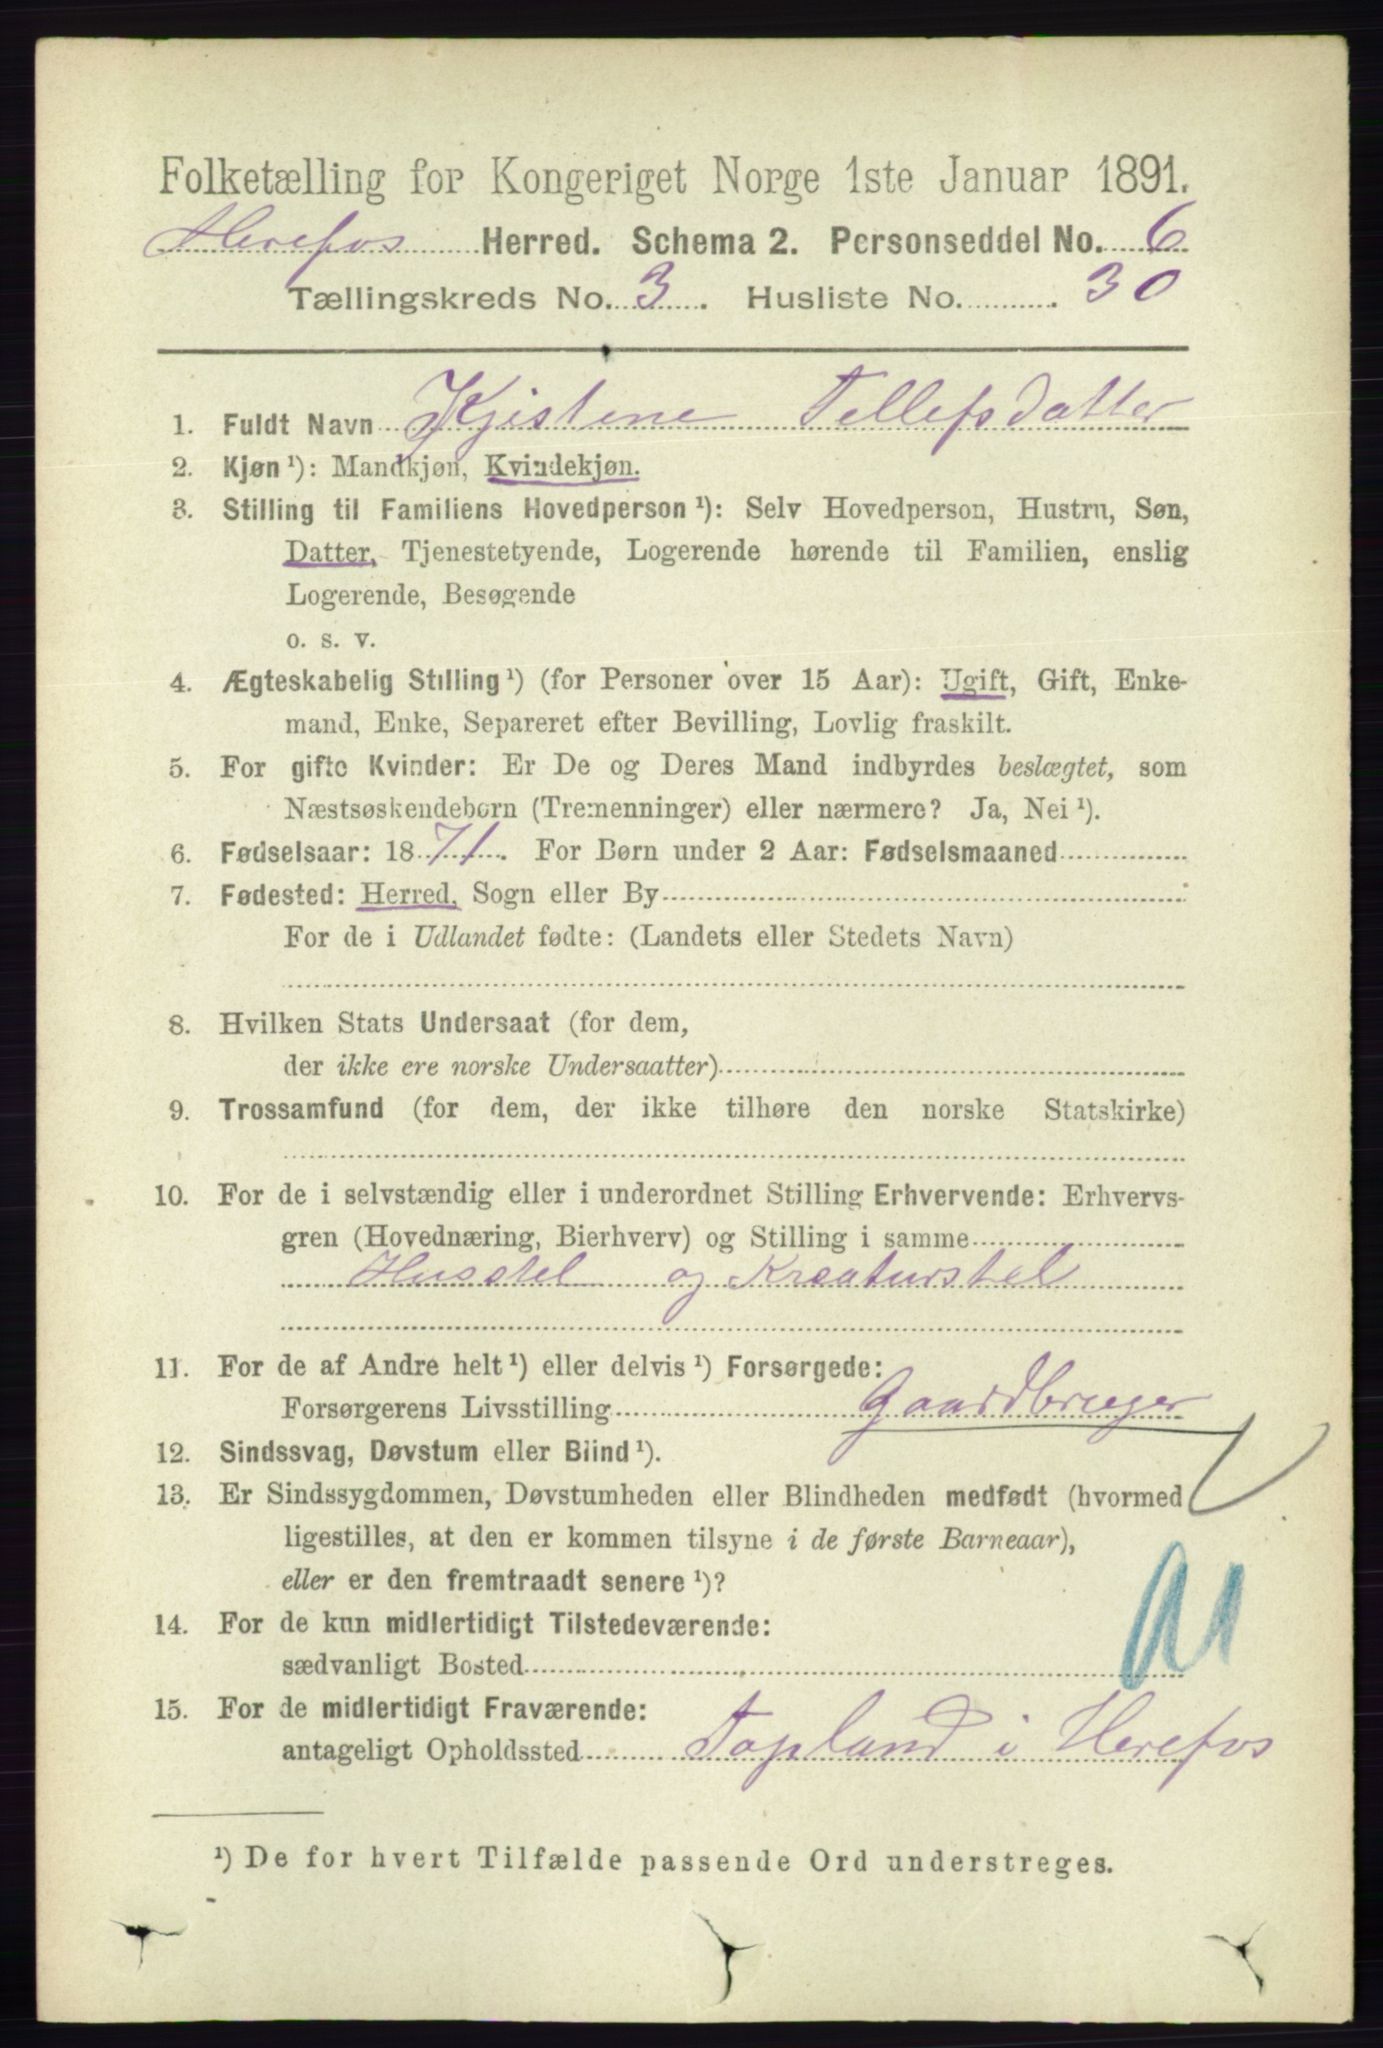 Folketælling for Kongeriget Norge 1ste Januar 1891.
Herefos Herred. Schema 2. Personseddel No. 6
Tællingskreds No. 3. Husliste No. 30
1. Fuldt Navn Kjistene Tellefsdatter
2. Kjøn ¹): Mandkjøn, Kvindekjøn.
3. Stilling til Familiens Hovedperson ¹): Selv Hovedperson, Hustru, Søn,
Datter, Tjenestetyende, Logerende hørende til Familien, enslig
Logerende, Besøgende
o. s. v.
4. Ægteskabelig Stilling ¹) (for Personer over 15 Aar): Ugift, Gift, Enke-
mand, Enke, Separeret efter Bevilling, Lovlig fraskilt.
5. For gifte Kvinder: Er De og Deres Mand indbyrdes beslægtet, som
Næstsøskendebørn (Tremenninger) eller nærmere? Ja, Nei ¹).
6. Fødselsaar: 1871. For Børn under 2 Aar: Fødselsmaaned
7. Fødested: Herred, Sogn eller By
For de i Udlandet fødte: (Landets eller Stedets Navn)
8. Hvilken Stats Undersaat (for dem,
der ikke ere norske Undersaatter)
9. Trossamfund (for dem, der ikke tilhøre den norske Statskirke)
10. For de i selvstændig eller i underordnet Stilling Erhvervende: Erhvervs-
gren (Hovednæring, Bierhverv) og Stilling i samme
Husstel og Kreaturstel
11. For de af Andre helt ¹) eller delvis ¹) Forsørgede:
Forsørgerens Livsstilling Gaardbruger
12. Sindssvag, Døvstum eller Blind ¹).
13. Er Sindssygdommen, Døvstumheden eller Blindheden medfødt (hvormed
ligestilles, at den er kommen tilsyne i de første Barneaar),
eller er den fremtraadt senere ¹)?
14. For de kun midlertidigt Tilstedeværende:
sædvanligt Bosted
15. For de midlertidigt Fraværende:
antageligt Opholdssted Topland i Herefos
¹) De for hvert Tilfælde passende Ord understreges.